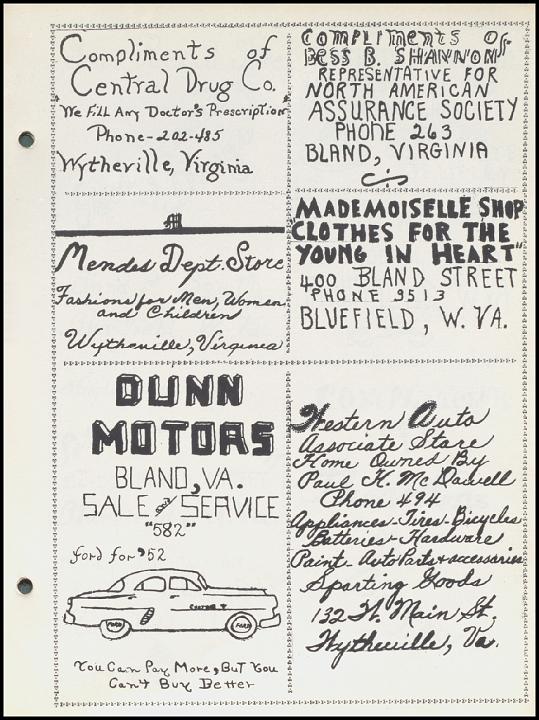 Compliments of
Central Drug Co.
"We Fill Any Doctor's Prescription"
Phone-202-485
Wytheville, Virginia
Compliments of
Bess B. Shannon
Representative for
North American
Assurance Society
Phone 263
Bland, Virginia
M
Mendes Dept. Store
Fashions for Men, Women
and Children
Wytheville, Virginia
"Mademoiselle Shop
"Clothes for the
Young in Heart"
400 Bland Street
"Phone 9513
Bluefield, W. Va.
Dunn
Motors
Bland, Va.
Sale and Service
"582"
Ford for '52
Ford
Ford
You Can Pay More, But You
Can't Buy Better
Western Auto
Associate Store
Home Owned By
Paul H. McDowell
Phone 494
Appliances-Tires-Bicycles
Batteries-Hardware
Paint-Auto Parts & accessories
Sporting Goods
132 W. Main St.
Wytheville, Va.